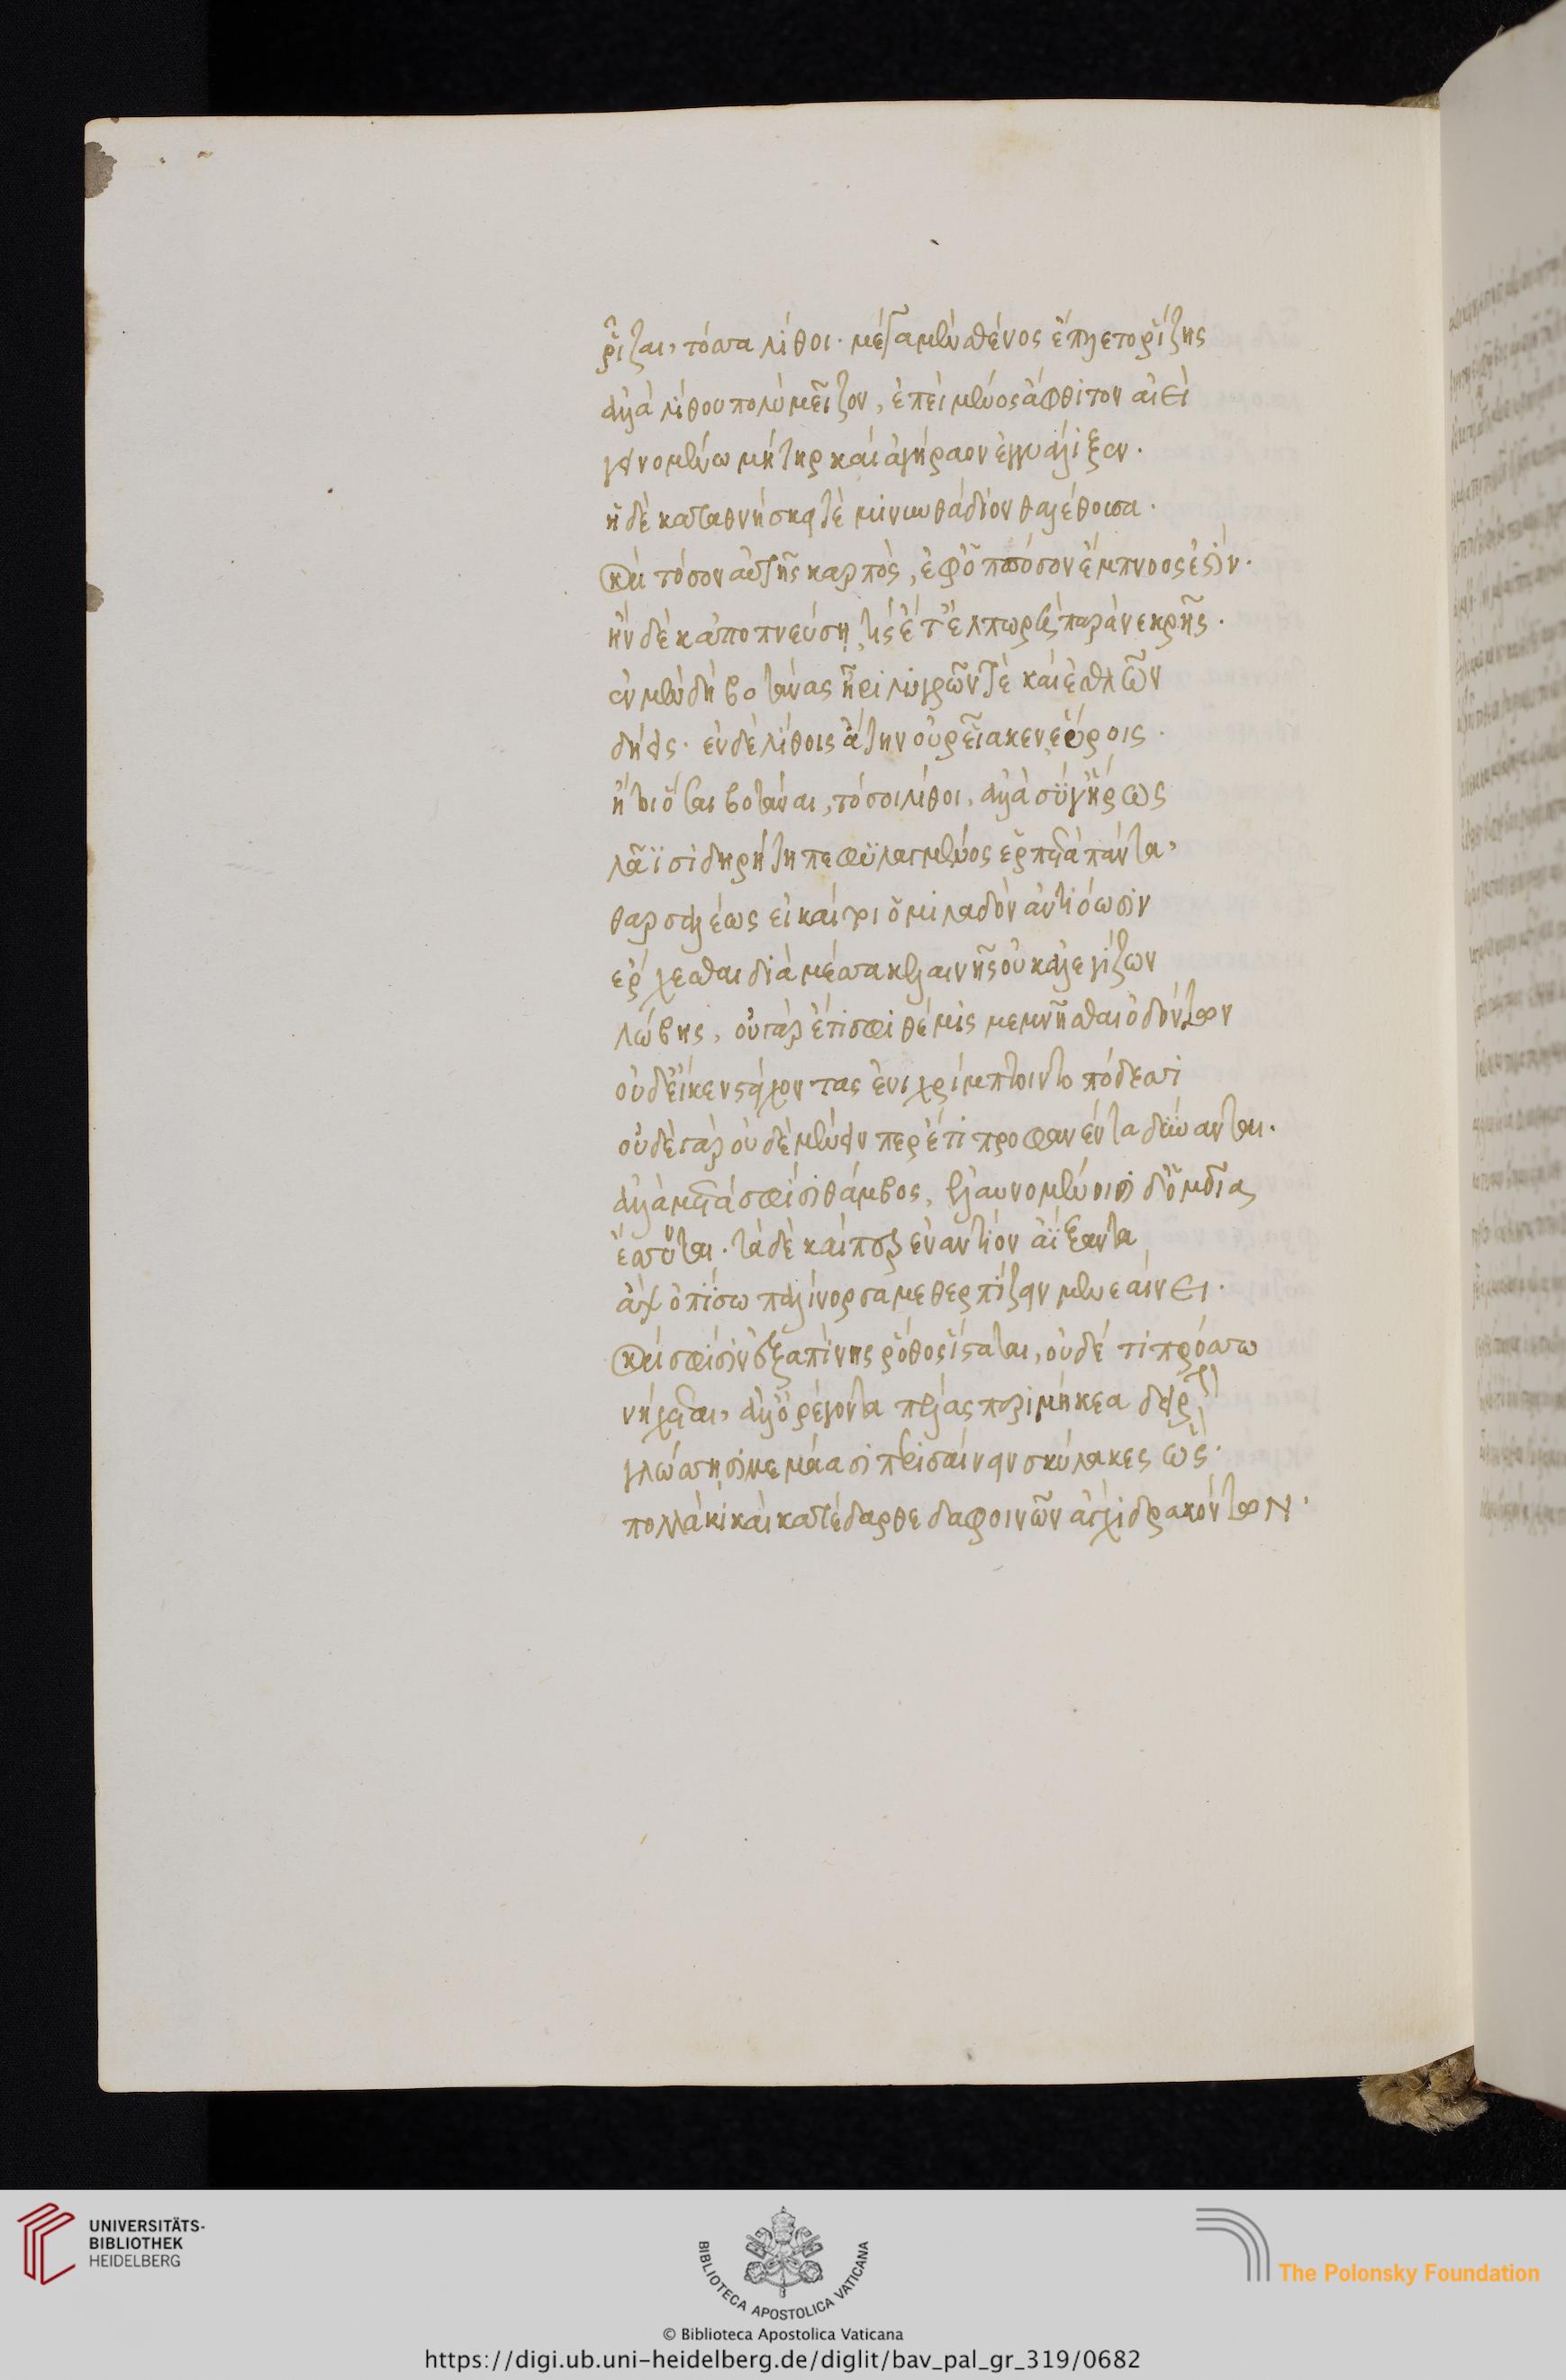 ῥίζαι, τόσσα λίθοι· μέγα μὲν σθένος ἔπλετο ῥίζης
ἀλλὰ λίθου πολὺ μεῖζον, ἐπεὶ μένος ἄφθιτον αἰεὶ
γεινομένω μήτηρ καὶ ἀγήραον ἐγγυάλιξεν.
ἡ δὲ καταθνήσκει τὲ μινυνθάδιον θαλέθοισα.
καὶ τόσον αὐτῆς καρπὸς, ἐφ' ὁππόσον ἔμπνοος ἐστίν.
ἢν δέ κ' ἀποπνεύση, τίς ἔτ' ἐλπωρὴ παρὰ νεκρῆς.
ἐν μὲν δὴ βοτάναις λυγρῶν τὲ καὶ ἐσθλῶν
δήεις. ἐν δὲ λίθοις ἄτην οὐ ῥεῖα κεν εὕροις.
ἤτοι ὅσαι βοτάναι, τόσοι λίθοι, ἀλλὰ σύ γ' ἥρως
λᾶϊ σιδηρήτη πεφϋλαγμένος ἑρπετὰ πάντα,
θαρσαλέως εἰ καί τοι ὁμιλαδὸν ἀντιόωσιν
ἔρχεσθαι διὰ μέσσα κελαινῆς οὐκ ἀλεγίζων
λώβης, οὐ γὰρ ἔτι σφι θέμις μεμνῆσθαι ὀδόντων
οὐδ' εἴ κεν στείχοντας ἐνιχρίμπτοιντο πόδεσσι
οὐδὲ γὰρ οὐδὲ μένειν περ ἔτι προφανέντα δύνανται.
ἀλλὰ μετά σφισι θάμβος, ἐλαυνομένοισι
ἔσσυται. τὰ δὲ καί περ ἐναντίον ἀΐξαντα
ἂψ ὀπίσω παλίνορσα μεθερπίζειν μενεαίνει.
καί σφισιν ἐξαπίνης ῥόθος ἵσταται, οὐδέ τι πρόσσω
νήχεται, ἀλλ' ὀρέγοντα πέλας περιμήκεα δειρὴν
γλώσσησι μεμάασι περισαίνειν σκύλακες ὥς.
πολλάκι καὶ κατέδαρθε δαφοινῶν ἄγχι δρακόντων.
UNIVERSITÄTS-
BIBLIOTHEK
HEIDELBERG
BIBLIOTECA APOSTOLICA VATICANA
The Polonsky Foundation
© Biblioteca Apostolica Vaticana
https://digi.ub.uni-heidelberg.de/diglit/bav_pal_gr_319/0682